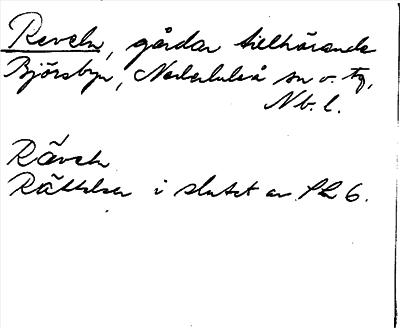 Reveln, gårdar tillhörande
Björsbyn, Nederluleå sn o. tg,
Nb. l.
Räveln
Rättelse i slutet av
6.